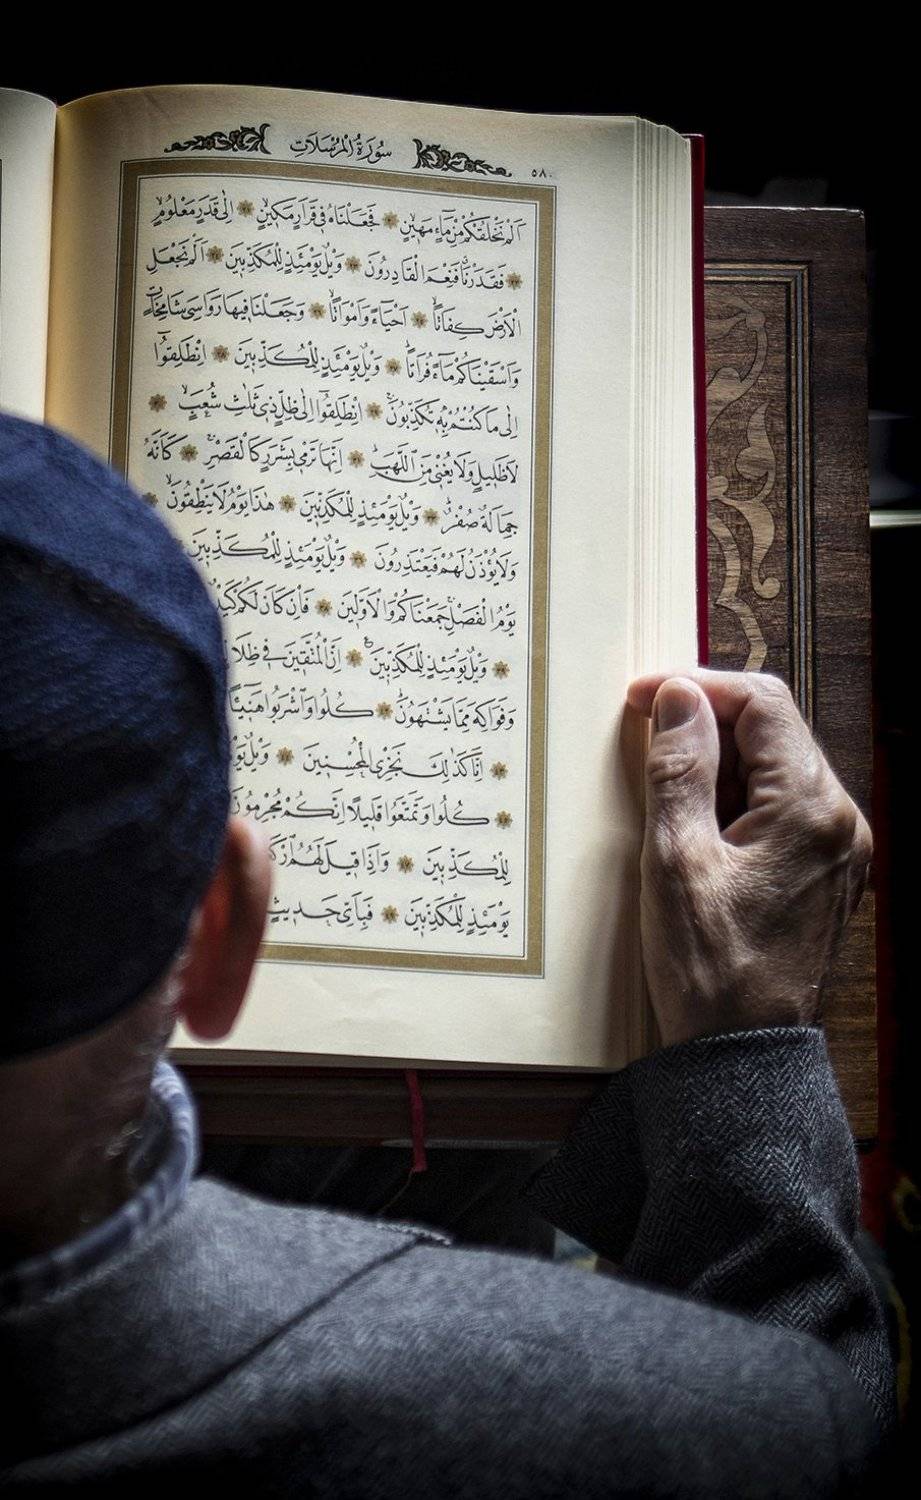 سُورَةُ الْمُرْسَلَاتِ
٥٨٠
اَلَمْ نَخْلُقْكُمْ مِنْ مَٓاءٍ مَهٖينٍ ۞ فَجَعَلْنَاهُ فٖي قَرَارٍ مَكٖينٍ ۞ اِلٰى قَدَرٍ مَعْلُومٍ
۞ فَقَدَرْنَا فَنِعْمَ الْقَادِرُونَ ۞ وَيْلٌ يَوْمَئِذٍ لِلْمُكَذِّبٖينَ ۞ اَلَمْ نَجْعَلِ
الْاَرْضَ كِفَاتًا ۞ اَحْيَٓاءً وَاَمْوَاتًا ۞ وَجَعَلْنَا فٖيهَا رَوَاسِيَ شَامِخَاتٍ
وَاَسْقَيْنَاكُمْ مَٓاءً فُرَاتًا ۞ وَيْلٌ يَوْمَئِذٍ لِلْمُكَذِّبٖينَ ۞ اِنْطَلِقُٓوا
اِلٰى مَا كُنْتُمْ بِهٖ تُكَذِّبُونَ ۞ اِنْطَلِقُٓوا اِلٰى ظِلٍّ ذٖي ثَلٰثِ شُعَبٍ ۞
لَا ظَلٖيلٍ وَلَا يُغْنٖي مِنَ اللَّهَبِ ۞ اِنَّهَا تَرْمٖي بِشَرَرٍ كَالْقَصْرِ ۞ كَاَنَّهُ
جِمَالَةٌ صُفْرٌ ۞ وَيْلٌ يَوْمَئِذٍ لِلْمُكَذِّبٖينَ ۞ هٰذَا يَوْمُ لَا يَنْطِقُونَ ۞
وَلَا يُؤْذَنُ لَهُمْ فَيَعْتَذِرُونَ ۞ وَيْلٌ يَوْمَئِذٍ لِلْمُكَذِّبٖينَ
يَوْمُ الْفَصْلِ جَمَعْنَاكُمْ وَالْاَوَّلٖينَ ۞ فَاِنْ كَانَ لَكُمْ كَيْدٌ
۞ وَيْلٌ يَوْمَئِذٍ لِلْمُكَذِّبٖينَ ۞ اِنَّ الْمُتَّقٖينَ فٖي ظِلَالٍ
وَفَوَاكِهَ مِمَّا يَشْتَهُونَ ۞ كُلُوا وَاشْرَبُوا هَنٖٓيئًا
۞ اِنَّا كَذٰلِكَ نَجْزِي الْمُحْسِنٖينَ ۞ وَيْلٌ يَوْمَئِذٍ
۞ كُلُوا وَتَمَتَّعُوا قَلٖيلًا اِنَّكُمْ مُجْرِمُونَ
لِلْمُكَذِّبٖينَ ۞ وَاِذَا قٖيلَ لَهُمُ ارْكَعُوا
يَوْمَئِذٍ لِلْمُكَذِّبٖينَ ۞ فَبِاَيِّ حَدٖيثٍ